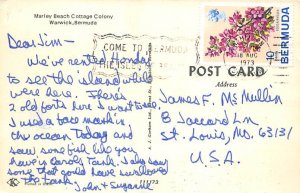 Marley Beach Cottage Colony
Warwick, Bermuda
Dear Jim -
We've rented Hondas
to see the island while
were here. There's
2 old forts here I want to see.
I used a face mask in
the ocean today and
saw some fish like you
have in Carols tank. I also saw
some that could have swallowed
the tank.
John & Suzanne
COME TO BERMUDA
18 AUG
1973
BERMUDA
POST CARD
Address
James F. McMullin
8 Jaccard Ln
St. Louis, Mo. 63131
U.S.A.